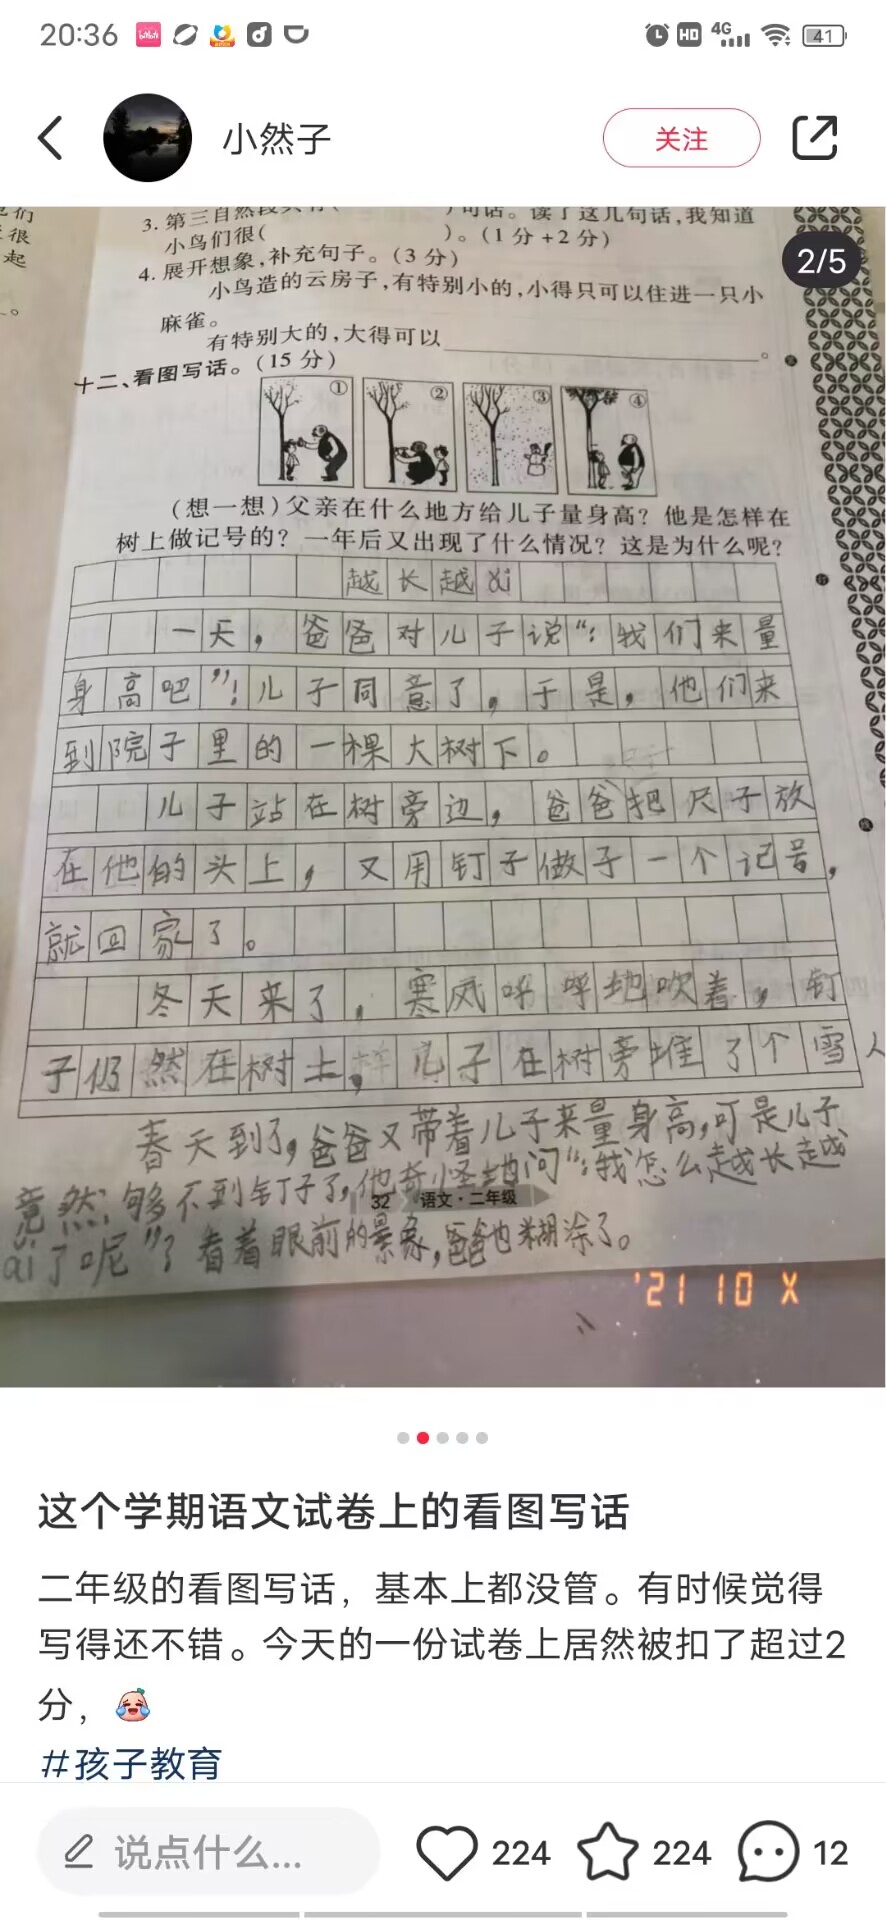 20:36
HD 4G 41
小然子
关注
2/5
们
很
起
。
3. 第三自然段共有( )句话。读了这几句话,我知道
小鸟们很( )。(1分+2分)
4. 展开想象,补充句子。(3分)
小鸟造的云房子,有特别小的,小得只可以住进一只小
麻雀。
有特别大的,大得可以 。
十二、看图写话。(15分)
① ② ③ ④
(想一想)父亲在什么地方给儿子量身高? 他是怎样在
树上做记号的? 一年后又出现了什么情况? 这是为什么呢?
越长越ǎi
一天,爸爸对儿子说“:我们来量
身高吧”!儿子同意了,于是,他们来
到院子里的一棵大树下。
儿子站在树旁边,爸爸把尺子放
在他的头上,又用钉子做子一个记号,
就回家了。
冬天来了,寒风呼呼地吹着,钉
子仍然在树上,儿子在树旁堆了个雪人
春天到了,爸爸又带着儿子来量身高,可是儿子
竟然够不到钉子了,他奇怪地问“:我怎么越长越
ǎi了呢”?看着眼前的景象,爸爸也糊涂了。
32 语文·二年级
'21 10 X
这个学期语文试卷上的看图写话
二年级的看图写话，基本上都没管。有时候觉得
写得还不错。今天的一份试卷上居然被扣了超过2
分，
#孩子教育
说点什么...
224
224
12